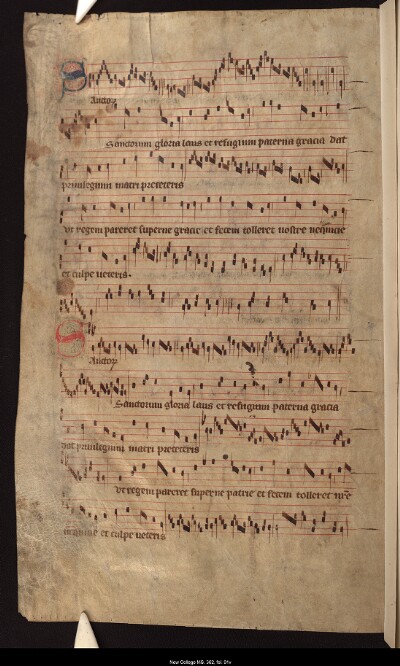 Sanctorum gloria laus et refugium paterna gracia dat
privilegium matri preceteris
ut regem pareret superne gracie et fecem tolleret nostre nequicie
et culpe veteris.
Sanctorum gloria laus et refugium paterna gracia
dat privilegium matri preceteris
ut regem pareret superne patrie et fecem tolleret
et culpe veteris
New College MS. 362, fol.